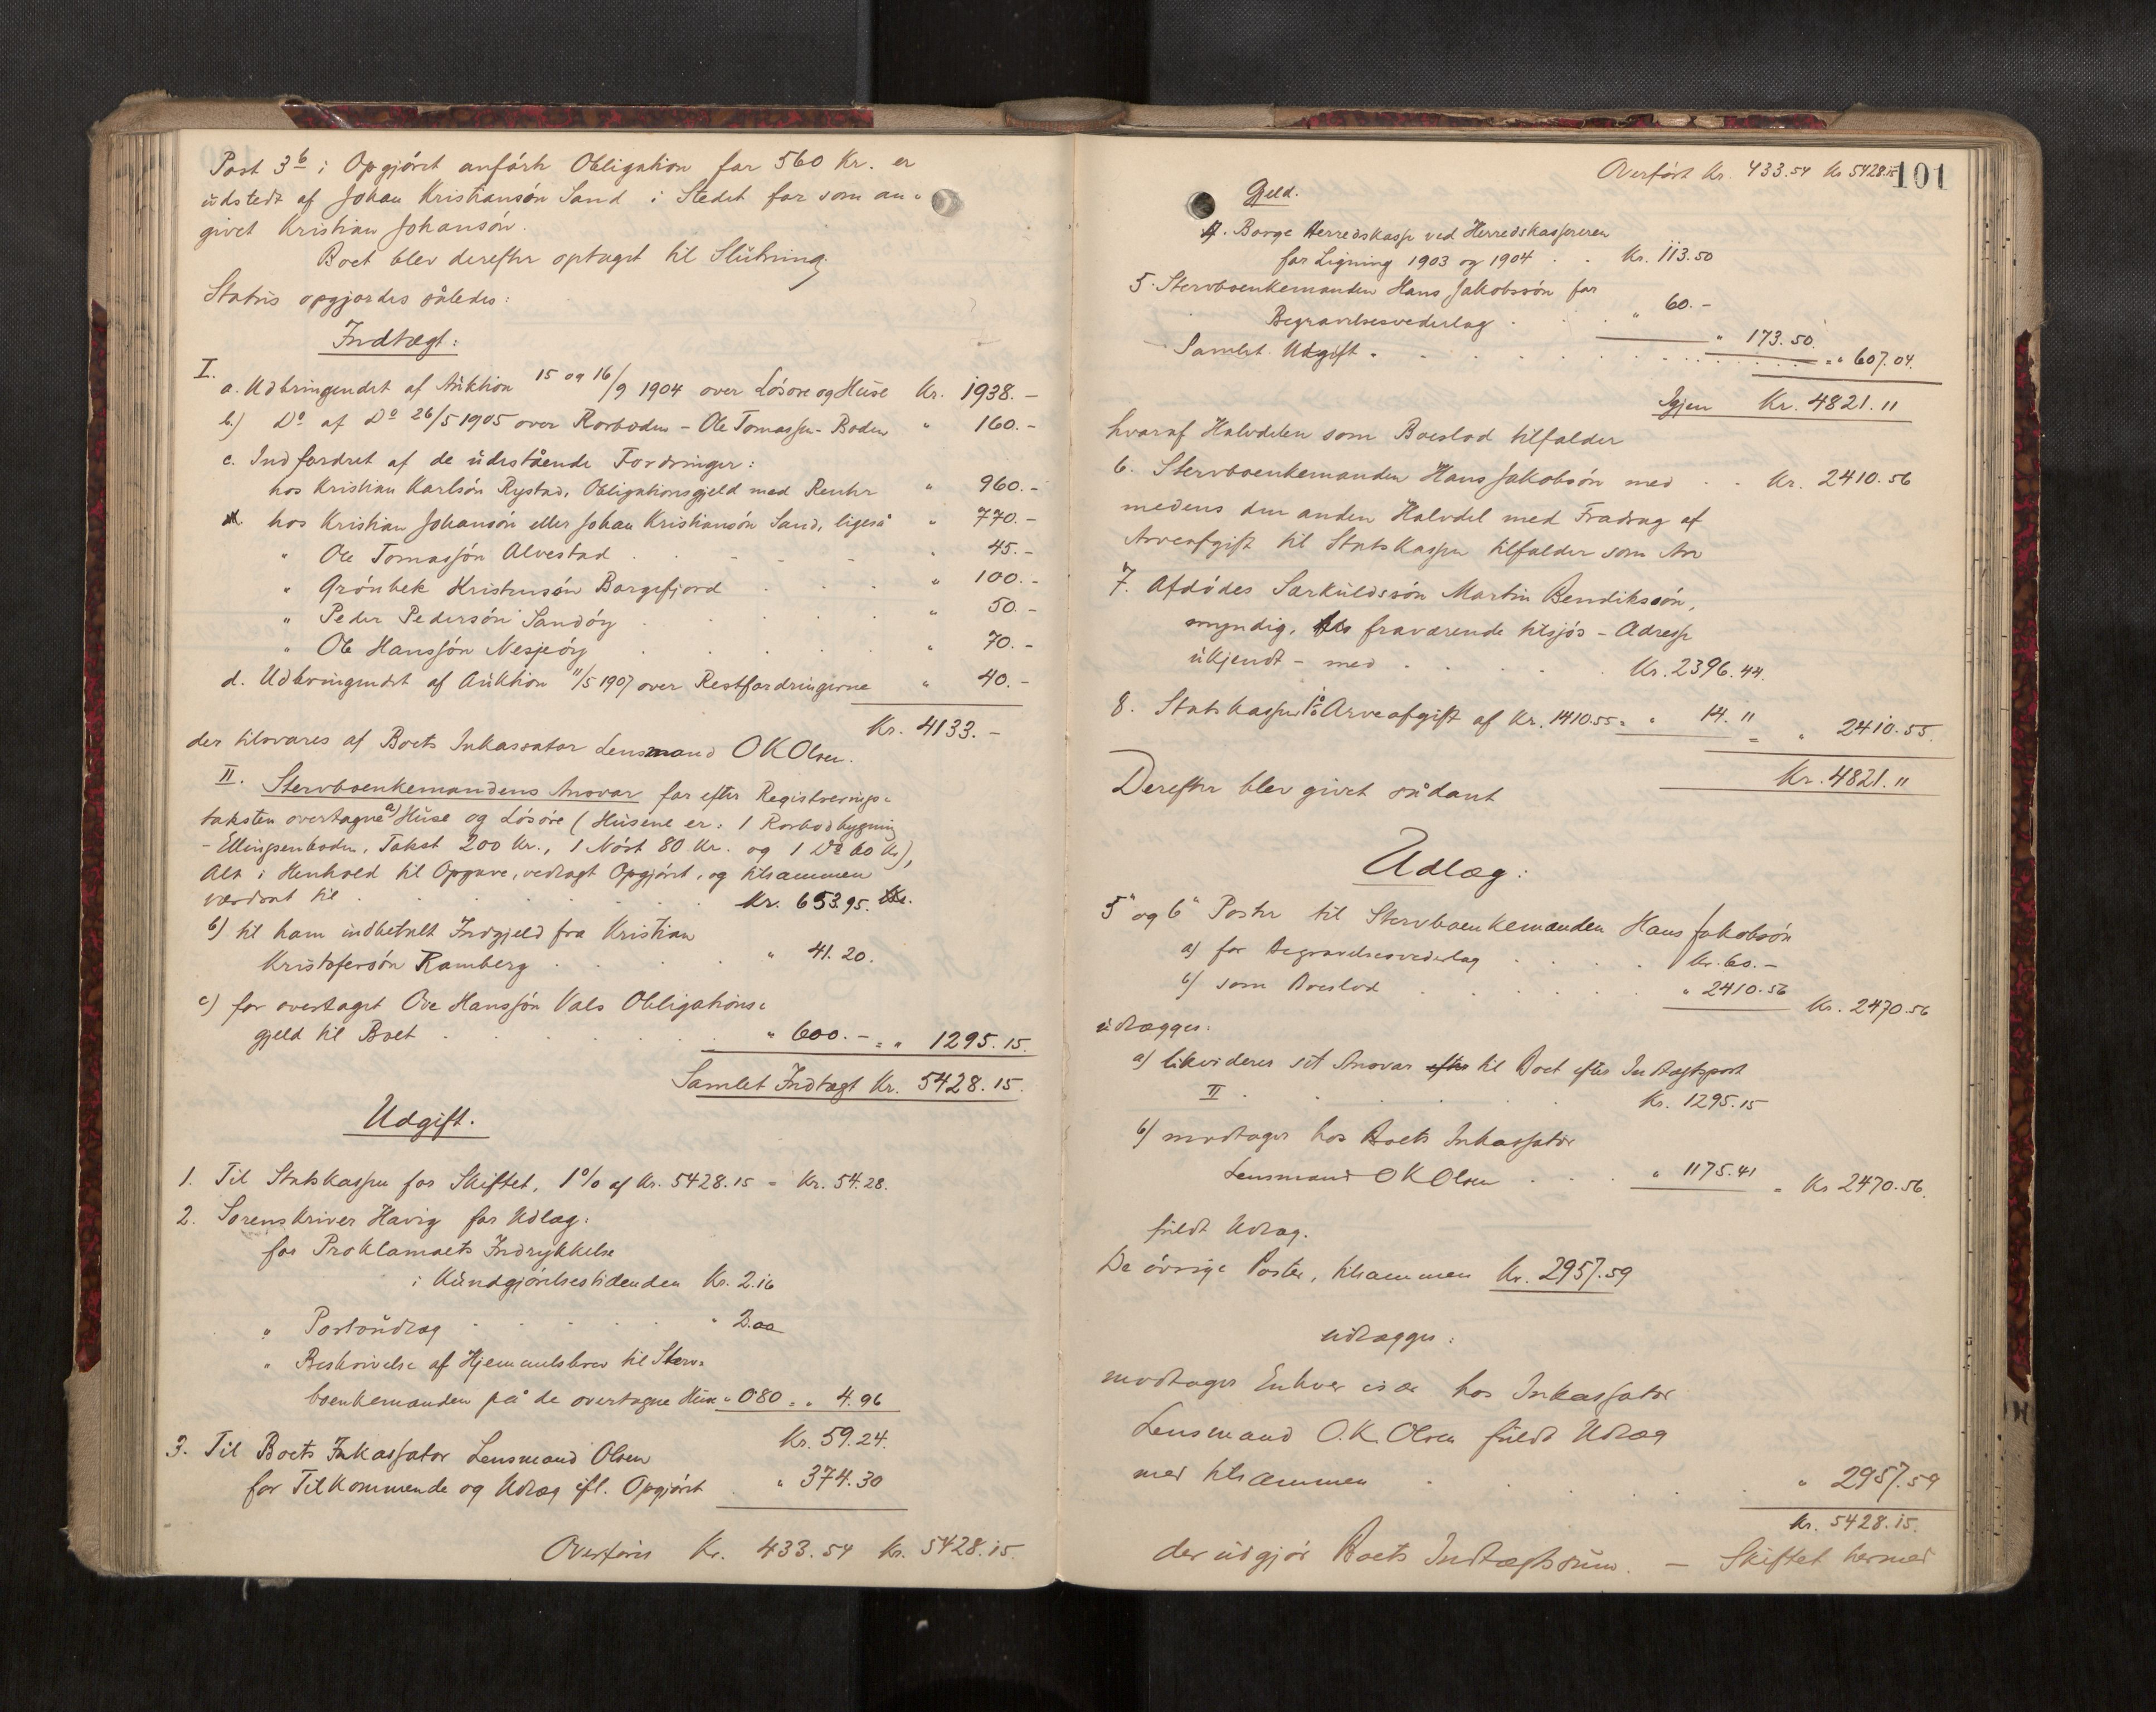 Post 3 b i Opgjöret anförte Obligation for 560 Kr. er
udstedt af Johan Kristiansön Sand i Stedet for som an-
givet Kristian Johansön.
Boet blev derefter optaget til Slutning.
Status opgjordes således:
Indtægt:
I.
a. Udbringendet af Auktion 15 og 16/9 1904 over Lösöre og Huse Kr. 1938.-
b.) Do af Do 26/5 1905 over Rorboden - Ole Tomassen-Boden " 160.-
c. Indfordret af de udestående Fordringer:
hos Kristian Karlsön Rystad, Obligationsgjeld med Renter " 960.-
hos Kristian Johansön eller Johan Kristiansön Sand, ligeså " 770.-
" Ole Tomassön Alvestad . . . . " 45.-
" Grönbek Kristensön Borgefjord . . . " 100.-
" Peder Pedersön Sandöy . . . . " 50.-
" Ole Hanssön Nesjeöy . . . . " 70.-
d. Udbringendet af Auktion 11/5 1907 over Restfordringerne " 40.-
Kr. 4133.-
der tilsvares af Boets Inkassator Lensmand O K Olsen.
II. Stervboenkemandens Ansvar for efter Registrerings-
taksten overtagne a) Huse og Lösöre (Husene er: 1 Rorbodbygning
- Ellingsenboden, Takst 200 Kr., 1 Nöst 80 Kr. og 1 Do 60 Kr),
Alt i Henhold til Opgave, vedlagt Opgjöret, og tilsammen
værdsat til . . . . . Kr. 653.95.
b) til ham indbetalt Indgjeld fra Kristian
Kristofersön Ramberg . . . . " 41.20.
c) for overtaget Ole Hanssön Vals Obligations-
gjeld til Boet . . . . . " 600.- = " 1295.15.
Samlet Indtægt Kr. 5428.15.
Udgift.
1. Til Statskassen for Skiftet, 1% af Kr. 5428.15 = Kr. 54.28.
2. Sorenskriver Havig for Udlæg:
for Proklamaets Indrykkelse
i Kundgjörelsestidenden Kr. 2.16
" Portoudlæg . . . . . " 2.00
" Beskrivelse af Hjemmelsbrev til Sterv-
boenkemanden på de overtagne Huse " 0 80 = " 4.96
Kr. 59.24.
3. Til Boets Inkassator Lensmand Olsen
for Tilkommende og Udlæg ifl. Opgjöret . " 374.30
Overföres Kr. 433.54 Kr. 5428.15.
Overfört Kr. 433.54 Kr 5428.15
101
Gjeld.
4. Borge Herredskasse ved Herredskassereren
for Ligning 1903 og 1904 . . Kr. 113.50
5. Stervboenkemanden Hans Jakobssön for
Begravelsesvederlag . . . " 60.-
" 173.50.
Samlet Udgift . . . . . . = " 607.04.
Igjen Kr. 4821.11
hvoraf Halvdelen som Boeslod tilfalder
6. Stervboenkemanden Hans Jakobsön med . . Kr. 2410.56
medens den anden Halvdel med Fradrag af
Arveafgift til Statskassen tilfalder som Arv
7. Afdödes Særkuldssön Martin Bendikssön,
myndig, fraværende tilsjös - Adresse
ukjendt - med . . . . . Kr. 2396.44.
8. Statskassen 1% Arveafgift af Kr. 1410.55 = " 14.11 = " 2410.55.
Kr. 4821.11
Derefter blev givet sådant
Udlæg:
5" og 6" Poster til Stervboenkemanden Hans Jakobsön
a) for Begravelsesvederlag . . . . Kr. 60.-
b) som Boeslod . . . . . " 2410.56 Kr. 2470.56
udlægges:
a) likvideres sit Ansvar efter til Boet efter Indtægtspost
II . . . . . Kr. 1295.15
b) modtages hos Boets Inkassator
Lensmand O K Olsen . . . " 1175.41 = Kr 2470.56.
fuldt Udlæg.
De övrige Poster, tilsammen Kr. 2957.59
udlægges:
modtager Enhver især hos Inkassator
Lensmand O. K. Olsen fuldt Udlæg
med tilsammen . . . . . . " 2957.59
Kr. 5428.15.
der udgjör Boets Indtægtssum. - Skiftet hermed